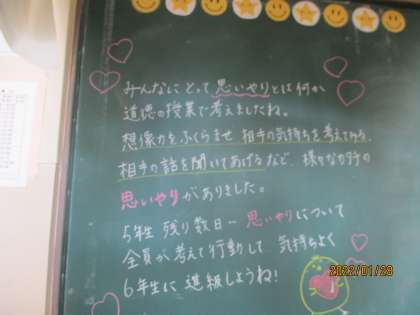 みんなにとって思いやりとは何か
道徳の授業で考えましたね。
想像力をふくらませ 相手の気持ちを考えてみる、
相手の話を聞いてあげるなど、様々な力子の
思いやりがありました。
5年生 残り数日… 思いやりについて
全員が考えて行動して 気持ちよく
6年生に進級しようね!
2022/01/28